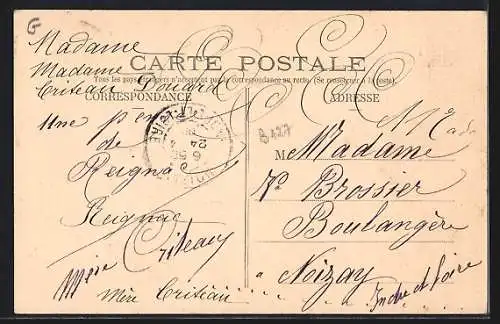 G
CARTE POSTALE
Tous les pays étrangers n'acceptent pas la correspondance au recto. (Se renseigner à la poste).
CORRESPONDANCE
ADRESSE
Madame
Madame
Criteau Douard
Une pen
de
Reigna
Reignac
Criteau
Mère
Mère Criteau
B427
Madame
Brossier
Boulangère
Noizay
Indre et Loire